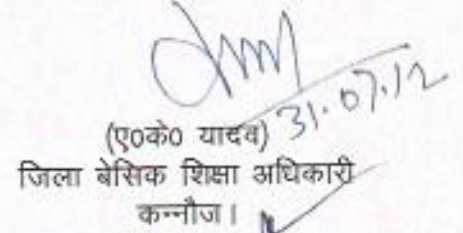 31.07.12
(ए०के० यादव)
जिला बेसिक शिक्षा अधिकारी
कन्नौज।